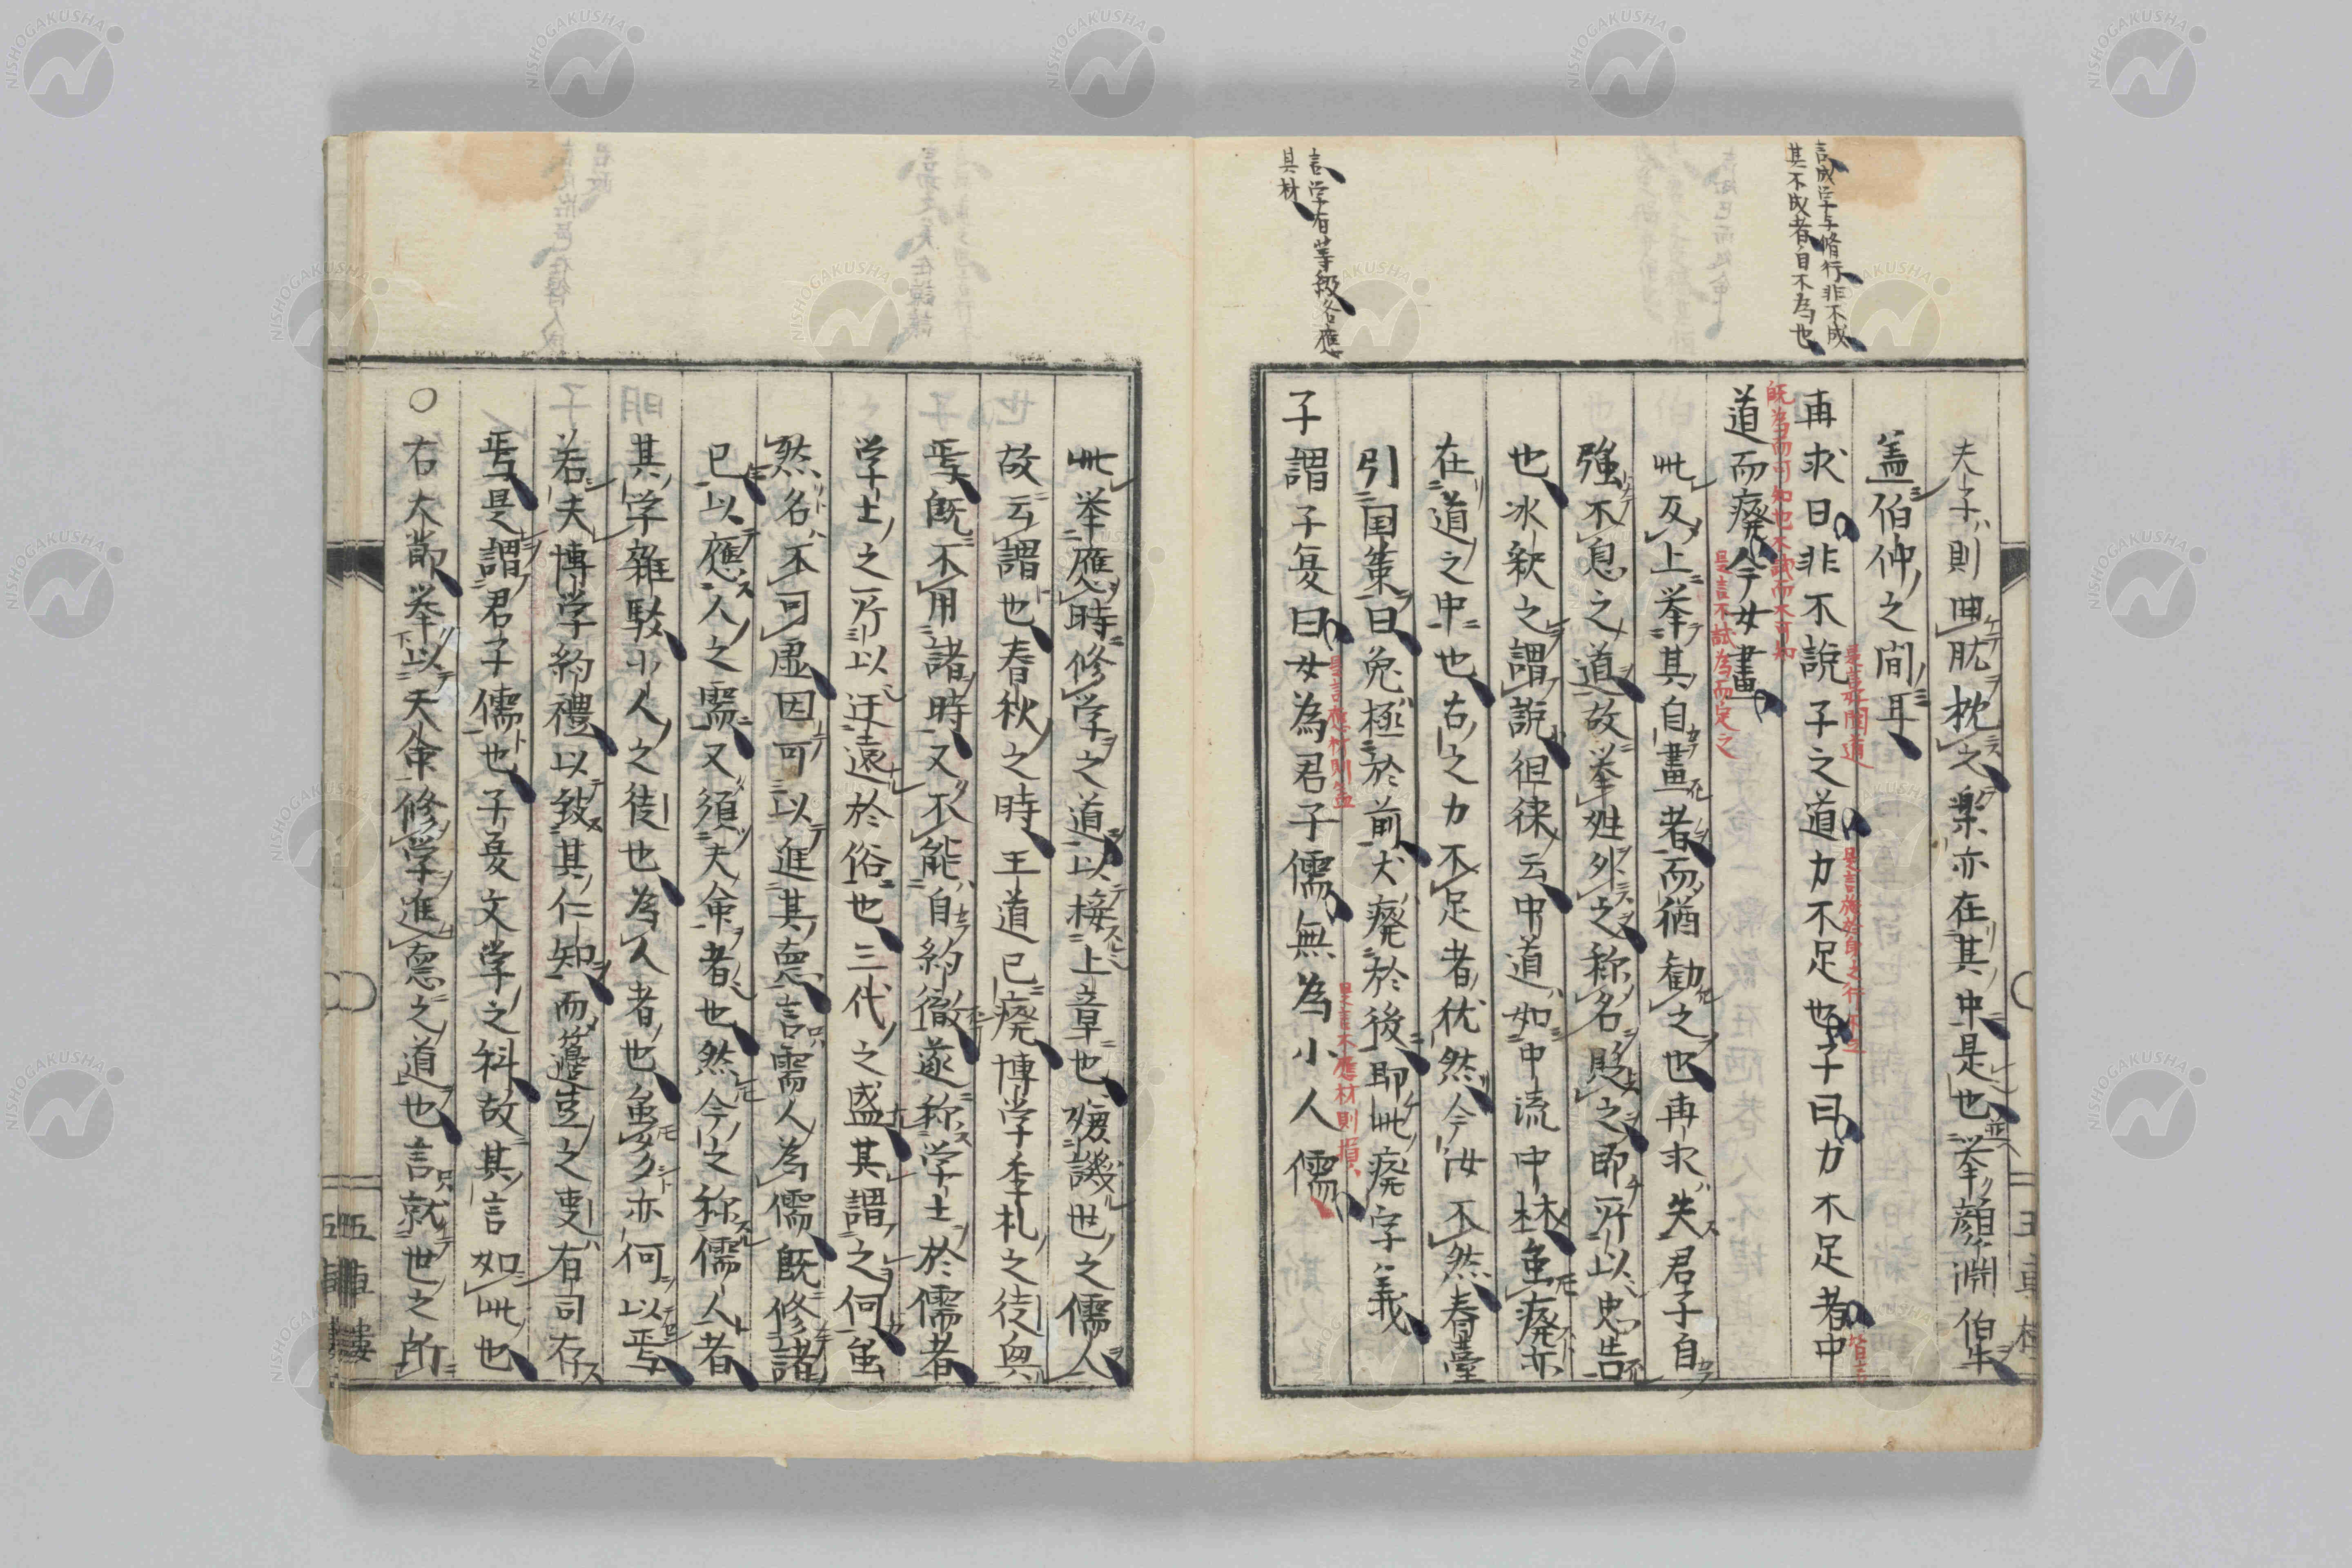 言成学与脩行非不成
其不成者自不為也
言学有等級各應
其材
夫子則曲肱枕之楽亦在其中是也挙顔淵伯牛
盖伯仲之間耳
冉求曰非不説子之道力不足也子曰力不足者中
是言好聞道
是言施於身之行不足
皆言
既為而可知也不試而不可知
道而廢今女畫
是言不試為而定之
此反上挙其自畫者而猶勧之也冉求失君子自
強不息之道故挙姓外之称名貶之即所以忠告
也冰釈之謂説徂徠云中道如中流中林虽廃亦
在道之中也古之力不足者犹然今汝不然春臺
引国策曰兔極於前犬廃於後即此廃字義
子謂子夏曰女為君子儒無為小人儒
是言應材則益
是言不應材則損
此挙應時修学之道以接上章也嫚譏世之儒人
故云謂也春秋之時王道已廃博学季札之徒與
焉既不用諸時又不能自約徹遂称学士於儒者
学士之所以迂遠於俗也三代之盛其謂之何虽
然名不可虚因可以進其悳言需人為儒既修諸
已以應人之需又須夫命者也然今之称儒人者
其学雜駁小人之徒也為人者也虽多亦何以焉
若夫博学約禮以致其仁知而籩豆之事有司存
焉是謂君子儒也子夏文学之科故其言如此也
○右六節挙以天命修学進悳之道也言就世之所
五車楼